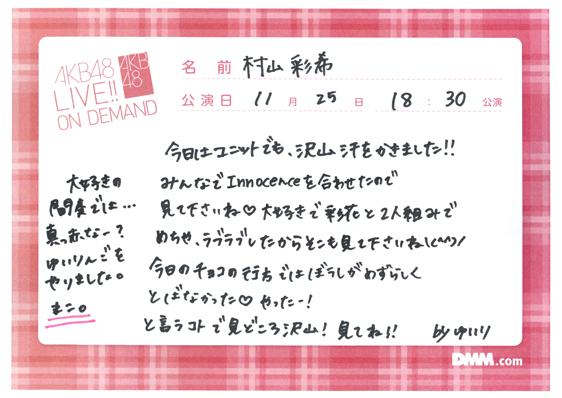 AKB48
LIVE!!
ON DEMAND
AKB
48
名前 村山彩希
公演日 11月25日 18:30公演
今日はユニットでも、沢山汗をかきました!!
みんなでInnocenceを合わせたので
見て下さいね♡大好きで彩花と2人組みで
めちゃ、ラブラブしたからそこも見て下さいね\(^^)/
今日のチョコの行方ではぼうしがめずらしく
とばなかった♡やったー!
と言うコトで見どころ沢山!見てねっ!! byゆいり
大好きの
間奏では…
真っ赤なー?
ゆいりんごを
やりました。
まこ。
DMM.com